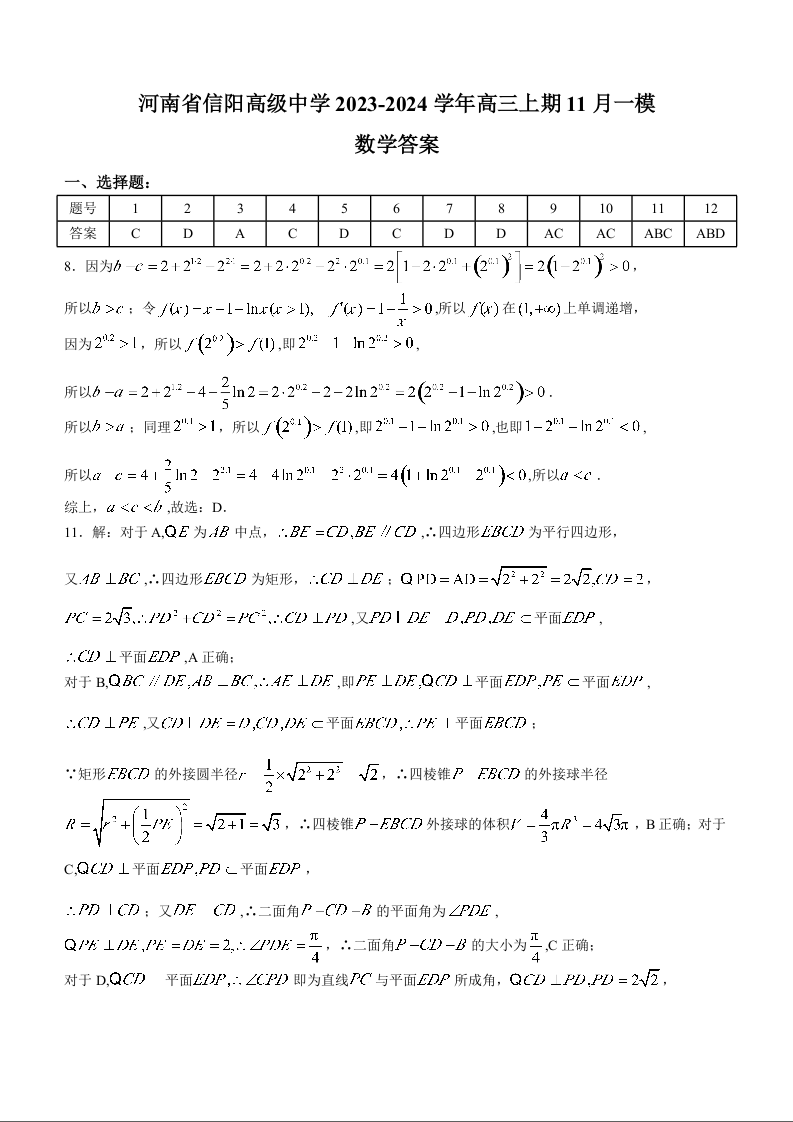 河南省信阳高级中学 2023-2024 学年高三上期 11 月一模
数学答案
一、选择题：
题号 1 2 3 4 5 6 7 8 9 10 11 12
答案 C D A C D C D D AC AC ABC ABD
8．因为 b − c = 2 + 2^{1·2} − 2^{2·1} = 2 + 2·2^{0.2} − 2^2·2^{0.1} = 2[1 − 2·2^{0.1} + (2^{0.1})^2] = 2(1 − 2^{0.1})^2 > 0，
所以 b > c ；令 f(x) = x − 1 − ln x(x > 1), f′(x) = 1 − 1/x > 0 ,所以 f(x) 在 (1, +∞) 上单调递增，
因为 2^{0.2} > 1 ，所以 f(2^{0.2}) > f(1) ,即 2^{0.2} 1 ln 2^{0.2} > 0 ,
所以 b − a = 2 + 2^{1.2} − 4 − 2/5 ln 2 = 2·2^{0.2} − 2 − 2ln 2^{0.2} = 2(2^{0.2} − 1 − ln 2^{0.2}) > 0 .
所以 b > a ；同理 2^{0.1} > 1 ，所以 f(2^{0.1}) > f(1) ,即 2^{0.1} − 1 − ln 2^{0.1} > 0 ,也即 1 − 2^{0.1} − ln 2^{0.1} < 0 ,
所以 a c = 4 + 2/5 ln 2 2^{2.1} = 4 4ln 2^{0.1} 2^2·2^{0.1} = 4(1 + ln 2^{0.1} 2^{0.1}) < 0 ,所以 a < c .
综上， a < c < b ,故选：D．
11．解：对于 A,Q E 为 AB 中点， ∴ BE = CD, BE // CD ,∴四边形 EBCD 为平行四边形，
又 AB ⊥ BC ,∴四边形 EBCD 为矩形， ∴ CD ⊥ DE ；Q PD = AD = √2^2 + 2^2 = 2√2, CD = 2 ，
PC = 2√3, ∴ PD^2 + CD^2 = PC^2, ∴ CD ⊥ PD ,又 PD I DE D, PD, DE ⊂ 平面 EDP ,
∴ CD ⊥ 平面 EDP ,A 正确；
对于 B,Q BC // DE, AB ⊥ BC, ∴ AE ⊥ DE ,即 PE ⊥ DE, Q CD ⊥ 平面 EDP, PE ⊂ 平面 EDP ,
∴ CD ⊥ PE ,又 CD I DE = D, CD, DE ⊂ 平面 EBCD, ∴ PE ⊥ 平面 EBCD ；
∵矩形 EBCD 的外接圆半径 r 1/2 × √2^2 + 2^2 √2 ，∴四棱锥 P EBCD 的外接球半径
R = √r^2 + (1/2 PE)^2 = √2 + 1 = √3 ，∴四棱锥 P − EBCD 外接球的体积 V = 4/3 πR^3 = 4√3π ，B 正确；对于
C,Q CD ⊥ 平面 EDP, PD ⊂ 平面 EDP ，
∴ PD ⊥ CD ；又 DE CD ,∴二面角 P − CD − B 的平面角为 ∠PDE ,
Q PE ⊥ DE, PE = DE = 2, ∴ ∠PDE = π/4 ，∴二面角 P − CD − B 的大小为 π/4 ,C 正确；
对于 D,Q CD 平面 EDP, ∴ ∠CPD 即为直线 PC 与平面 EDP 所成角，Q CD ⊥ PD, PD = 2√2 ，